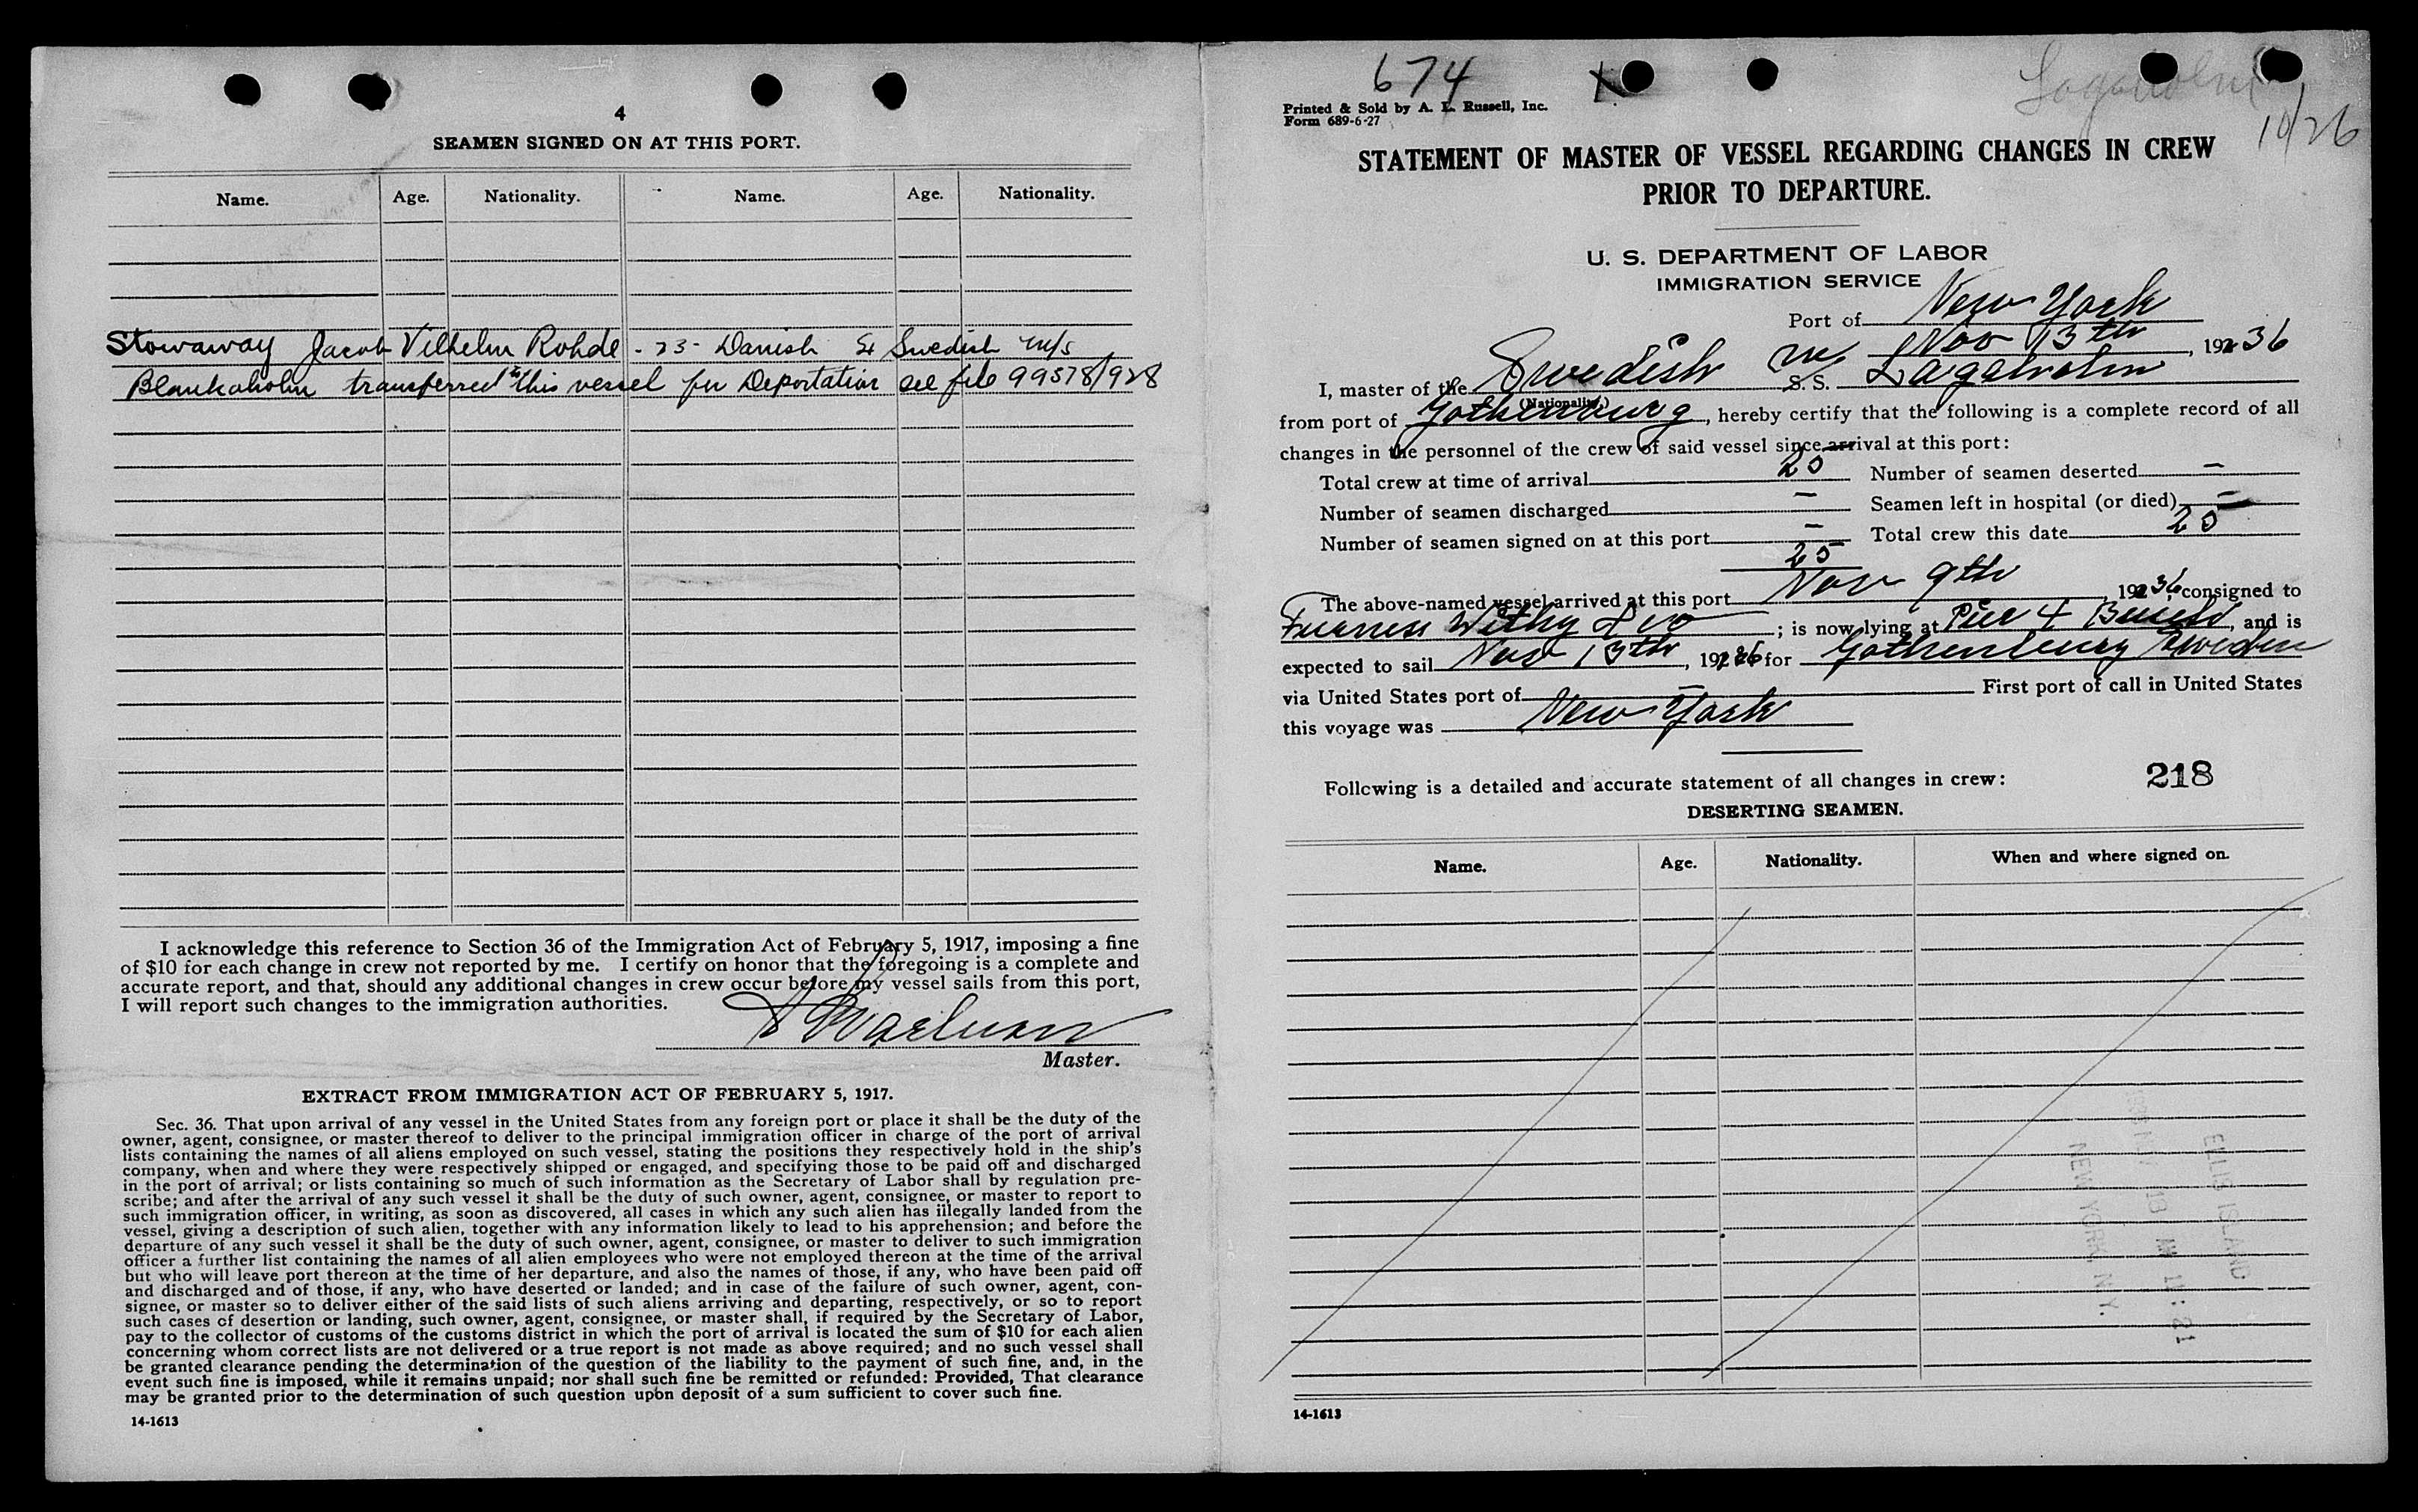 4
SEAMEN SIGNED ON AT THIS PORT.
Name. Age. Nationality. Name. Age. Nationality.
Stowaway Jacob Vilhelm Rohde - 23 - Danish Ex Swedish M/S
Blankaholm transferred to this vessel for Deportation see file 99578/928
I acknowledge this reference to Section 36 of the Immigration Act of February 5, 1917, imposing a fine
of $10 for each change in crew not reported by me. I certify on honor that the foregoing is a complete and
accurate report, and that, should any additional changes in crew occur before my vessel sails from this port,
I will report such changes to the immigration authorities.
Master.
EXTRACT FROM IMMIGRATION ACT OF FEBRUARY 5, 1917.
Sec. 36. That upon arrival of any vessel in the United States from any foreign port or place it shall be the duty of the
owner, agent, consignee, or master thereof to deliver to the principal immigration officer in charge of the port of arrival
lists containing the names of all aliens employed on such vessel, stating the positions they respectively hold in the ship's
company, when and where they were respectively shipped or engaged, and specifying those to be paid off and discharged
in the port of arrival; or lists containing so much of such information as the Secretary of Labor shall by regulation pre-
scribe; and after the arrival of any such vessel it shall be the duty of such owner, agent, consignee, or master to report to
such immigration officer, in writing, as soon as discovered, all cases in which any such alien has illegally landed from the
vessel, giving a description of such alien, together with any information likely to lead to his apprehension; and before the
departure of any such vessel it shall be the duty of such owner, agent, consignee, or master to deliver to such immigration
officer a further list containing the names of all alien employees who were not employed thereon at the time of the arrival
but who will leave port thereon at the time of her departure, and also the names of those, if any, who have been paid off
and discharged and of those, if any, who have deserted or landed; and in case of the failure of such owner, agent, con-
signee, or master so to deliver either of the said lists of such aliens arriving and departing, respectively, or so to report
such cases of desertion or landing, such owner, agent, consignee, or master shall, if required by the Secretary of Labor,
pay to the collector of customs of the customs district in which the port of arrival is located the sum of $10 for each alien
concerning whom correct lists are not delivered or a true report is not made as above required; and no such vessel shall
be granted clearance pending the determination of the question of the liability to the payment of such fine, and, in the
event such fine is imposed, while it remains unpaid; nor shall such fine be remitted or refunded: Provided, That clearance
may be granted prior to the determination of such question upon deposit of a sum sufficient to cover such fine.
14-1613
674
Printed & Sold by A. L. Russell, Inc.
Form 689-6-27
Lagaholm
10/26
STATEMENT OF MASTER OF VESSEL REGARDING CHANGES IN CREW
PRIOR TO DEPARTURE.
U. S. DEPARTMENT OF LABOR
IMMIGRATION SERVICE
Port of New York
Nov 13th, 1936
I, master of the Swedish M/S S. S. Lagaholm
(Nationality.)
from port of Gothenburg, hereby certify that the following is a complete record of all
changes in the personnel of the crew of said vessel since arrival at this port:
Total crew at time of arrival 25 Number of seamen deserted -
Number of seamen discharged - Seamen left in hospital (or died) -
Number of seamen signed on at this port - Total crew this date 25
25
The above-named vessel arrived at this port Nov 9th, 1936, consigned to
Furness Withy & Co; is now lying at Pier 4 , and is
expected to sail Nov 13th, 1936 for Gothenburg Sweden
via United States port of - First port of call in United States
this voyage was New York
Following is a detailed and accurate statement of all changes in crew: 218
DESERTING SEAMEN.
Name. Age. Nationality. When and where signed on.
ELLIS ISLAND
1936 NOV 13 AM 11:21
NEW YORK, N.Y.
14-1613